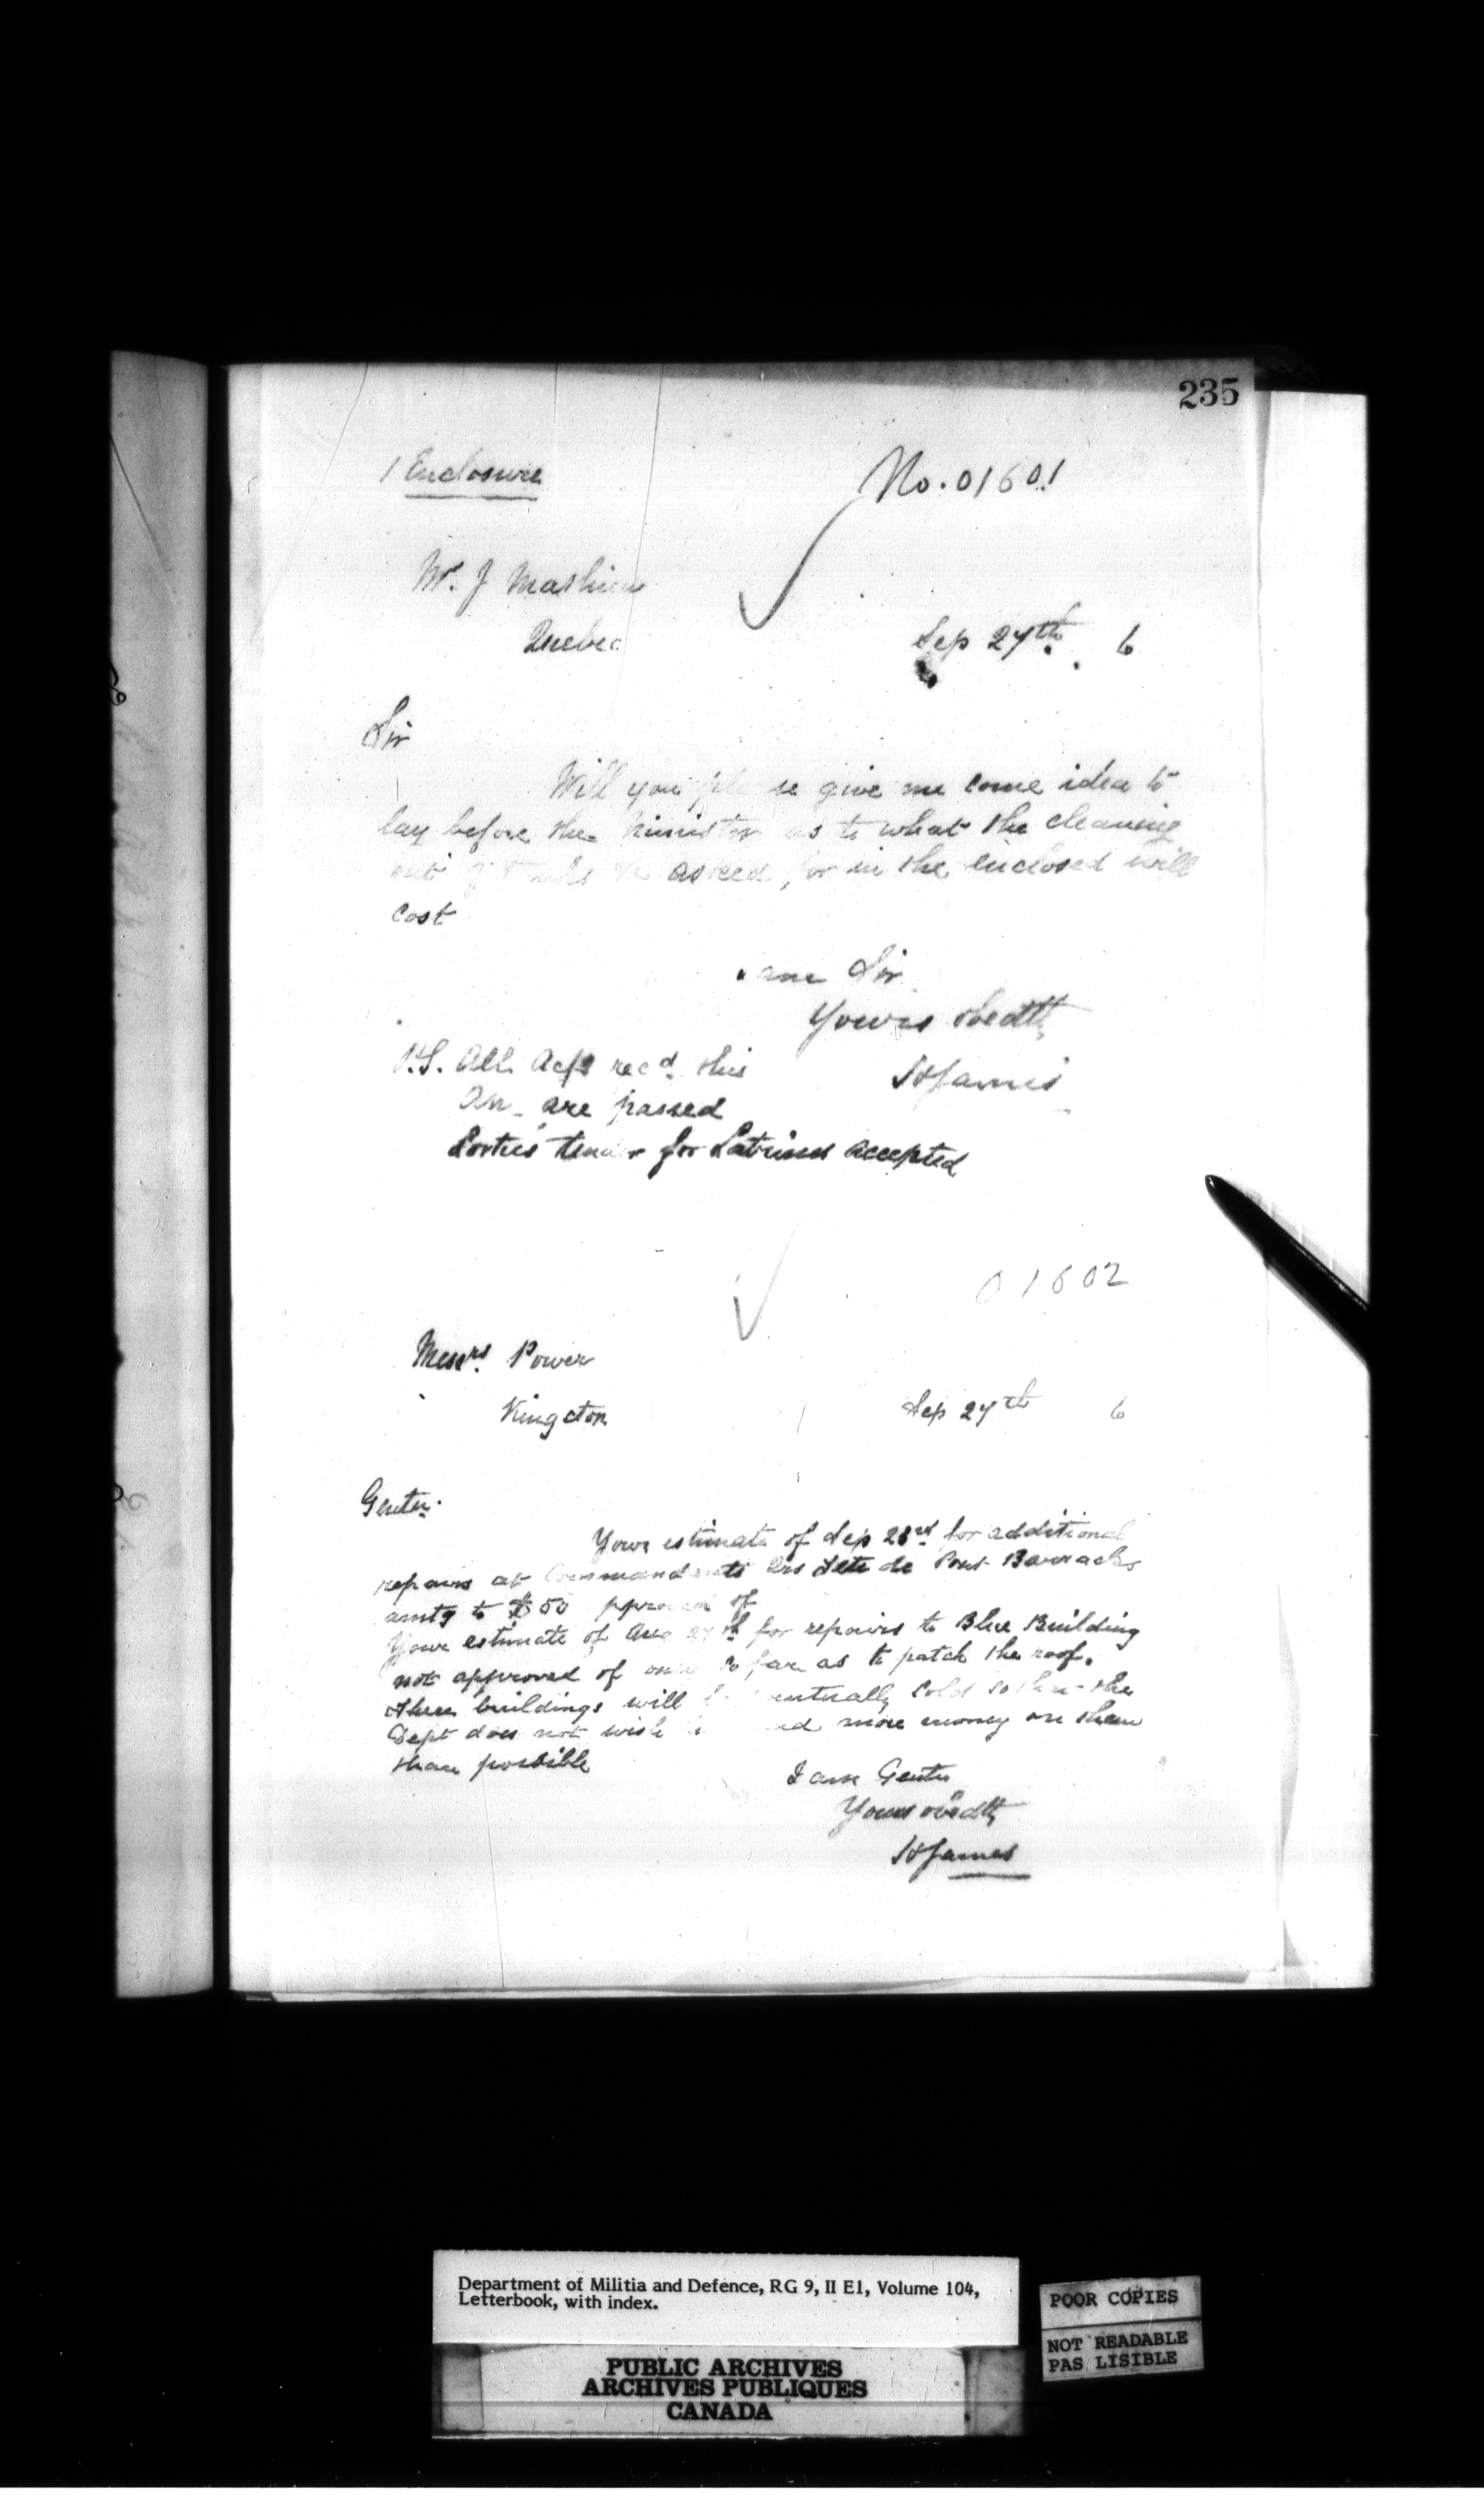 235
1 Enclosure
No. 01601
Mr. J
Quebec
Sep 27th 6
Sir
Will you give me some idea to
lay before the Minister as to what the cleaning
asked for in the enclosed will
cost
am Sir
Yours obedtly
HJames
P.S. All recd. this
are passed
tender for Latrines accepted
01602
Messrs. Power
Kingston
Sep 27th 6
Gentn.
Your estimate of Sep for additional
repairs at Commandants Qrs Tete de Pont Barracks
amtg to $50 of
Your estimate of for repairs to Blue Building
not approved of so far as to patch the roof.
These buildings will sold so that the
Dept does not wish more money on them
than possible
I am Gentn
Yours obedtly
HJames
Department of Militia and Defence, RG 9, II E1, Volume 104,
Letterbook, with index.
POOR COPIES
NOT READABLE
PAS LISIBLE
PUBLIC ARCHIVES
ARCHIVES PUBLIQUES
CANADA